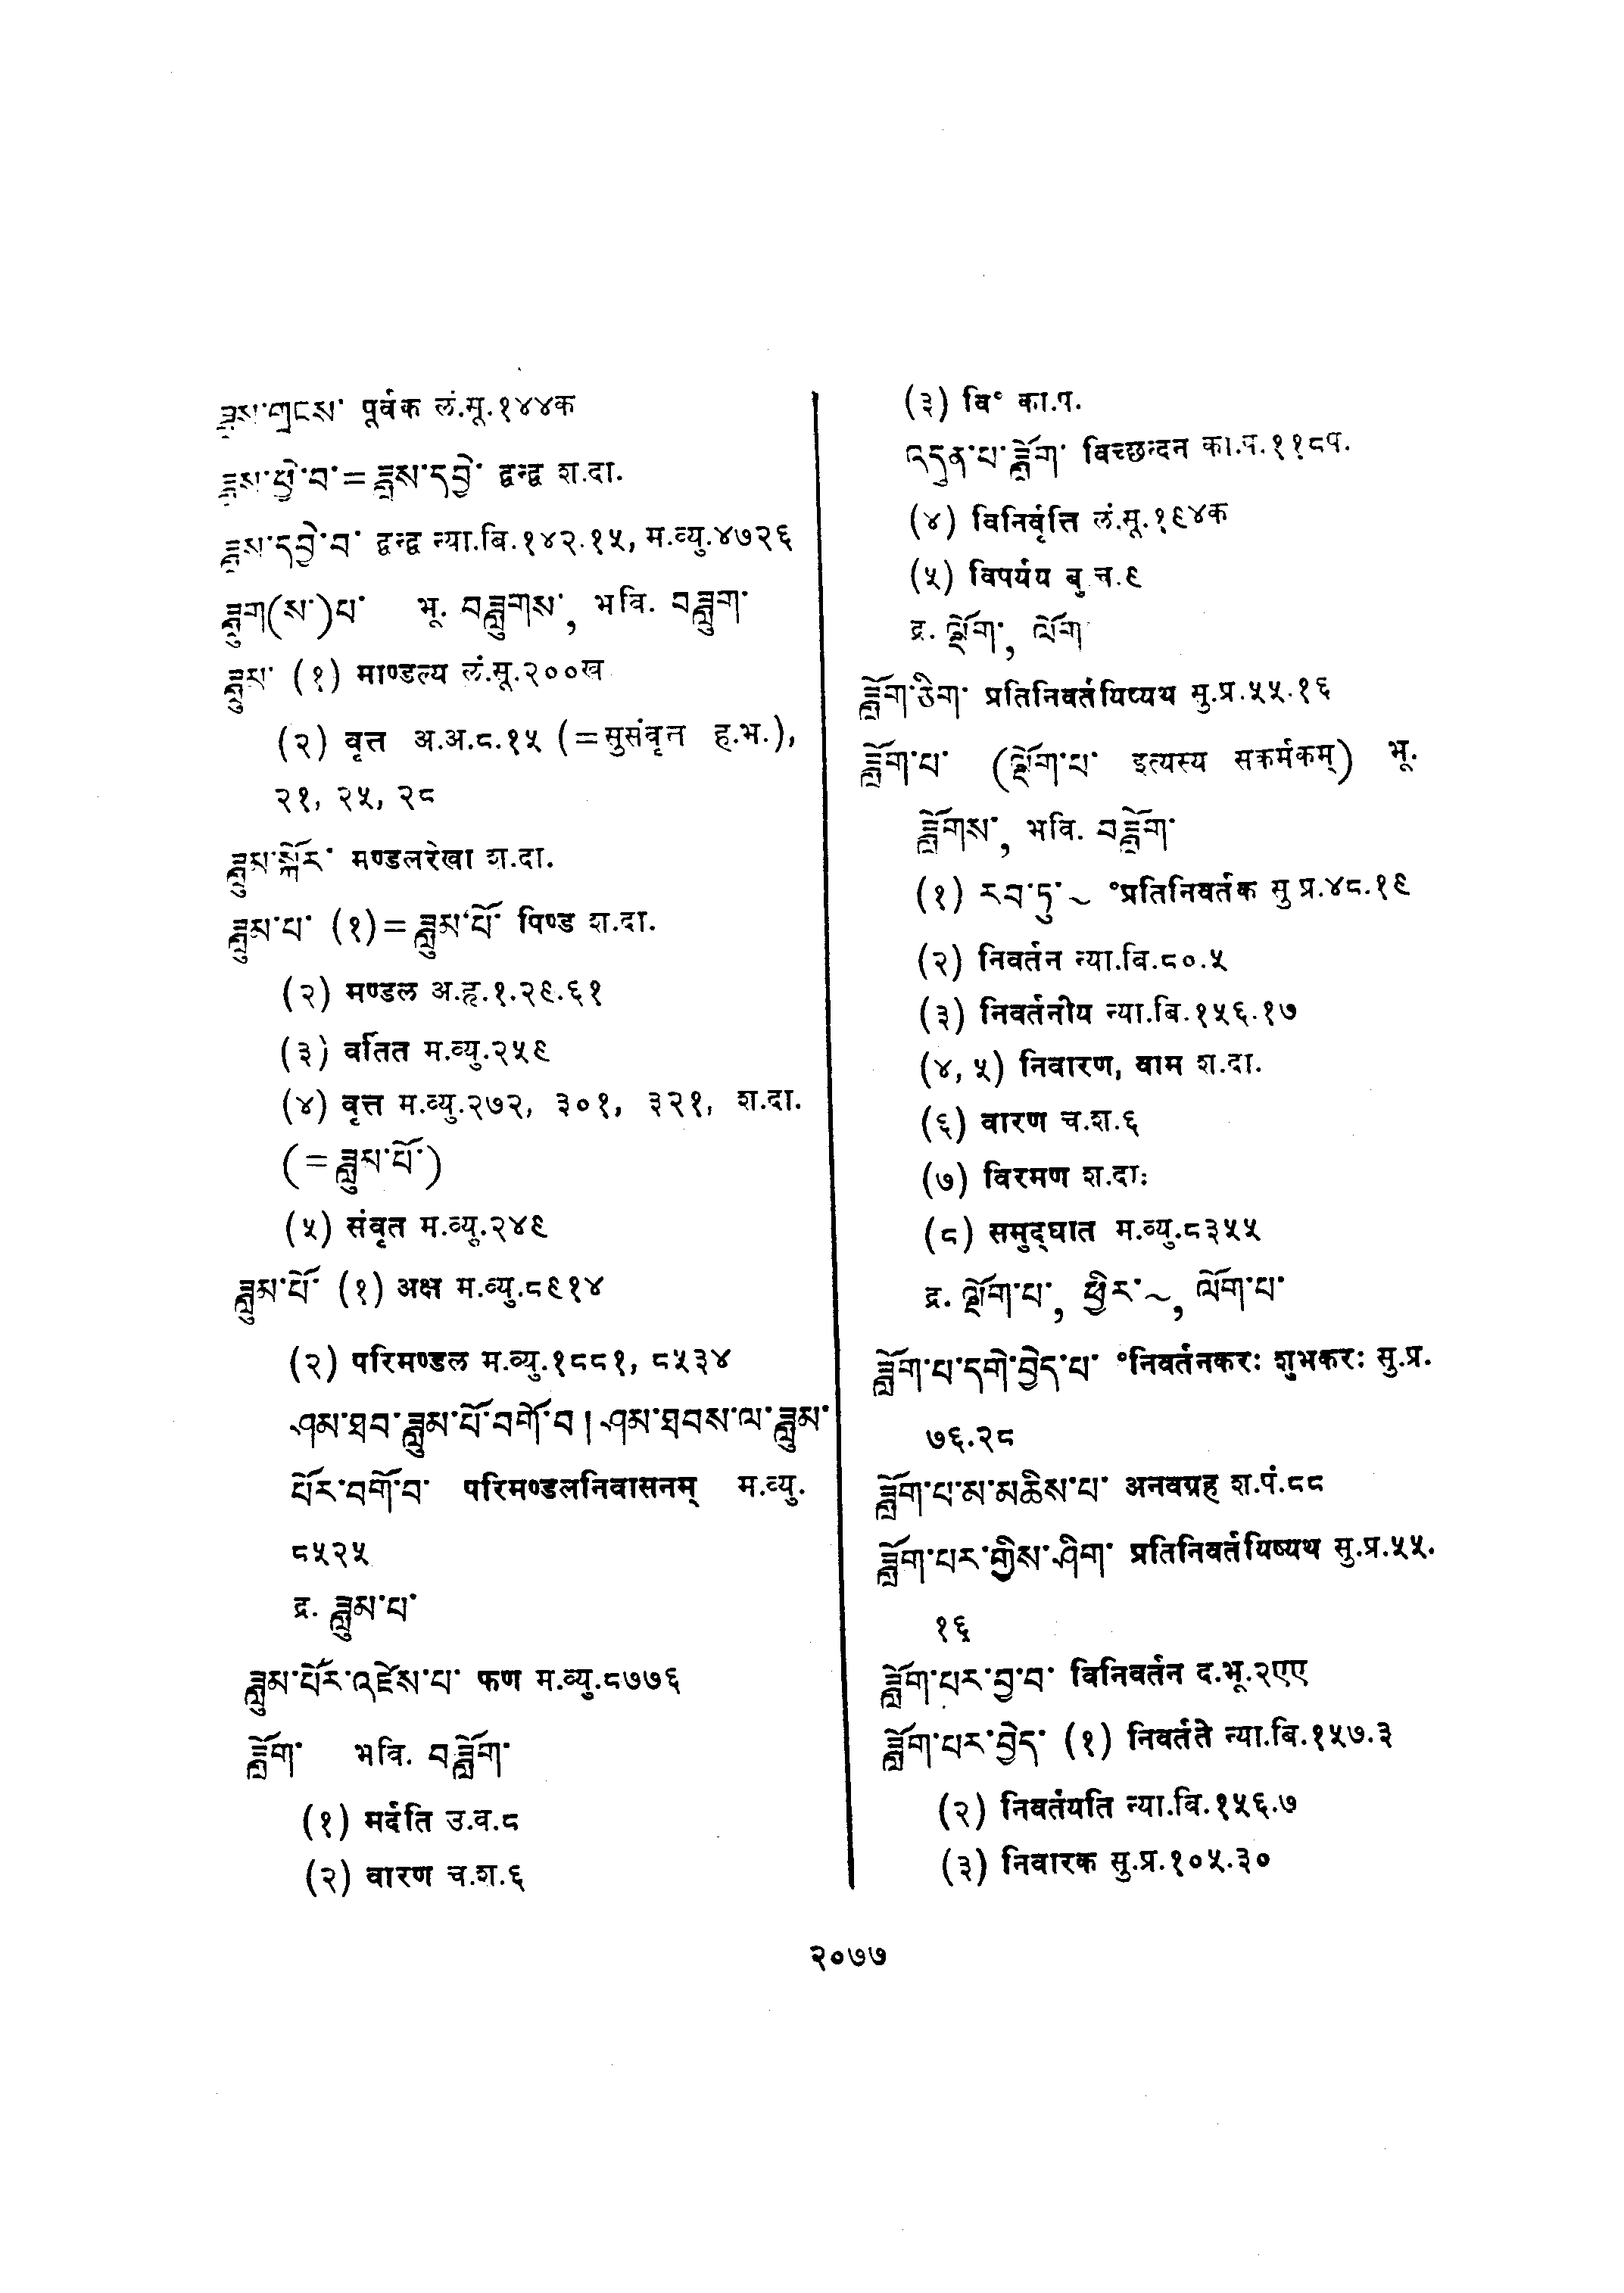 ཟླས་གྲངས་ पूर्वक लं.मू.१४४क
ཟླས་ཕྱེ་བ་=ཟླས་དབྱེ་ द्वन्द्व श.दा.
ཟླས་དབྱེ་བ་ द्वन्द्व न्या.बि.१४२.१५, म.व्यु.४७२६
ཟླུག(ས་)པ་ भू. བཟླུགས་, भवि. བཟླུག་
ཟླུམ་ (१) माण्डल्य लं.मू.२००ख
(२) वृत्त अ.अ.८.१५ (=सुसंवृत्त ह.भ.),
२१, २५, २८
ཟླུམ་སྐོར་ मण्डलरेखा श.दा.
ཟླུམ་པ་ (१)=ཟླུམ་པོ་ पिण्ड श.दा.
(२) मण्डल अ.हृ.१.२९.६१
(३) वर्तित म.व्यु.२५९
(४) वृत्त म.व्यु.२७२, ३०१, ३२१, श.दा.
(=ཟླུམ་པོ་)
(५) संवृत म.व्यु.२४९
ཟླུམ་པོ་ (१) अक्ष म.व्यु.८९१४
(२) परिमण्डल म.व्यु.१८८१, ८५३४
ཤམ་ཐབ་ཟླུམ་པོ་བགོ་བ། ཤམ་ཐབས་ལ་ཟླུམ་
པོར་བགོ་བ་ परिमण्डलनिवासनम् म.व्यु.
८५२५
द्र. ཟླུམ་པ་
ཟླུམ་པོར་འཛེས་པ་ फण म.व्यु.८७७६
ཟློག་ भवि. བཟློག་
(१) मर्दति उ.व.८
(२) वारण च.श.६
(३) वि° का.प.
འདུན་པ་ཟློག་ विच्छन्दन का.प.११८प.
(४) विनिर्वृत्ति लं.मू.१९४क
(५) विपर्यय बु.च.९
द्र. ལྡོག་, ལོག
ཟློག་ཅིག་ प्रतिनिवर्तयिष्यथ सु.प्र.५५.१६
ཟློག་པ་ (ལྡོག་པ་ इत्यस्य सकर्मकम्) भू.
ཟློགས་, भवि. བཟློག་
(१) རབ་ཏུ་~ °प्रतिनिवर्तक सु प्र.४८.१९
(२) निवर्तन न्या.बि.८०.५
(३) निवर्तनीय न्या.बि.१५६.१७
(४, ५) निवारण, वाम श.दा.
(६) वारण च.श.६
(७) विरमण श.दाः
(८) समुद्घात म.व्यु.८३५५
द्र. ལྡོག་པ་, ཕྱིར་~, ལོག་པ་
ཟློག་པ་དགེ་བྱེད་པ་ °निवर्तनकरः शुभकरः सु.प्र.
७६.२८
ཟློག་པ་མ་མཆིས་པ་ अनवग्रह श.पं.८८
ཟློག་པར་གྱིས་ཤིག་ प्रतिनिवर्तयिष्यथ सु.प्र.५५.
१६
ཟློག་པར་བྱ་བ་ विनिवर्तन द.भू.२एए
ཟློག་པར་བྱེད་ (१) निवर्तते न्या.बि.१५७.३
(२) निवर्तयति न्या.बि.१५६.७
(३) निवारक सु.प्र.१०५.३०
२०७७